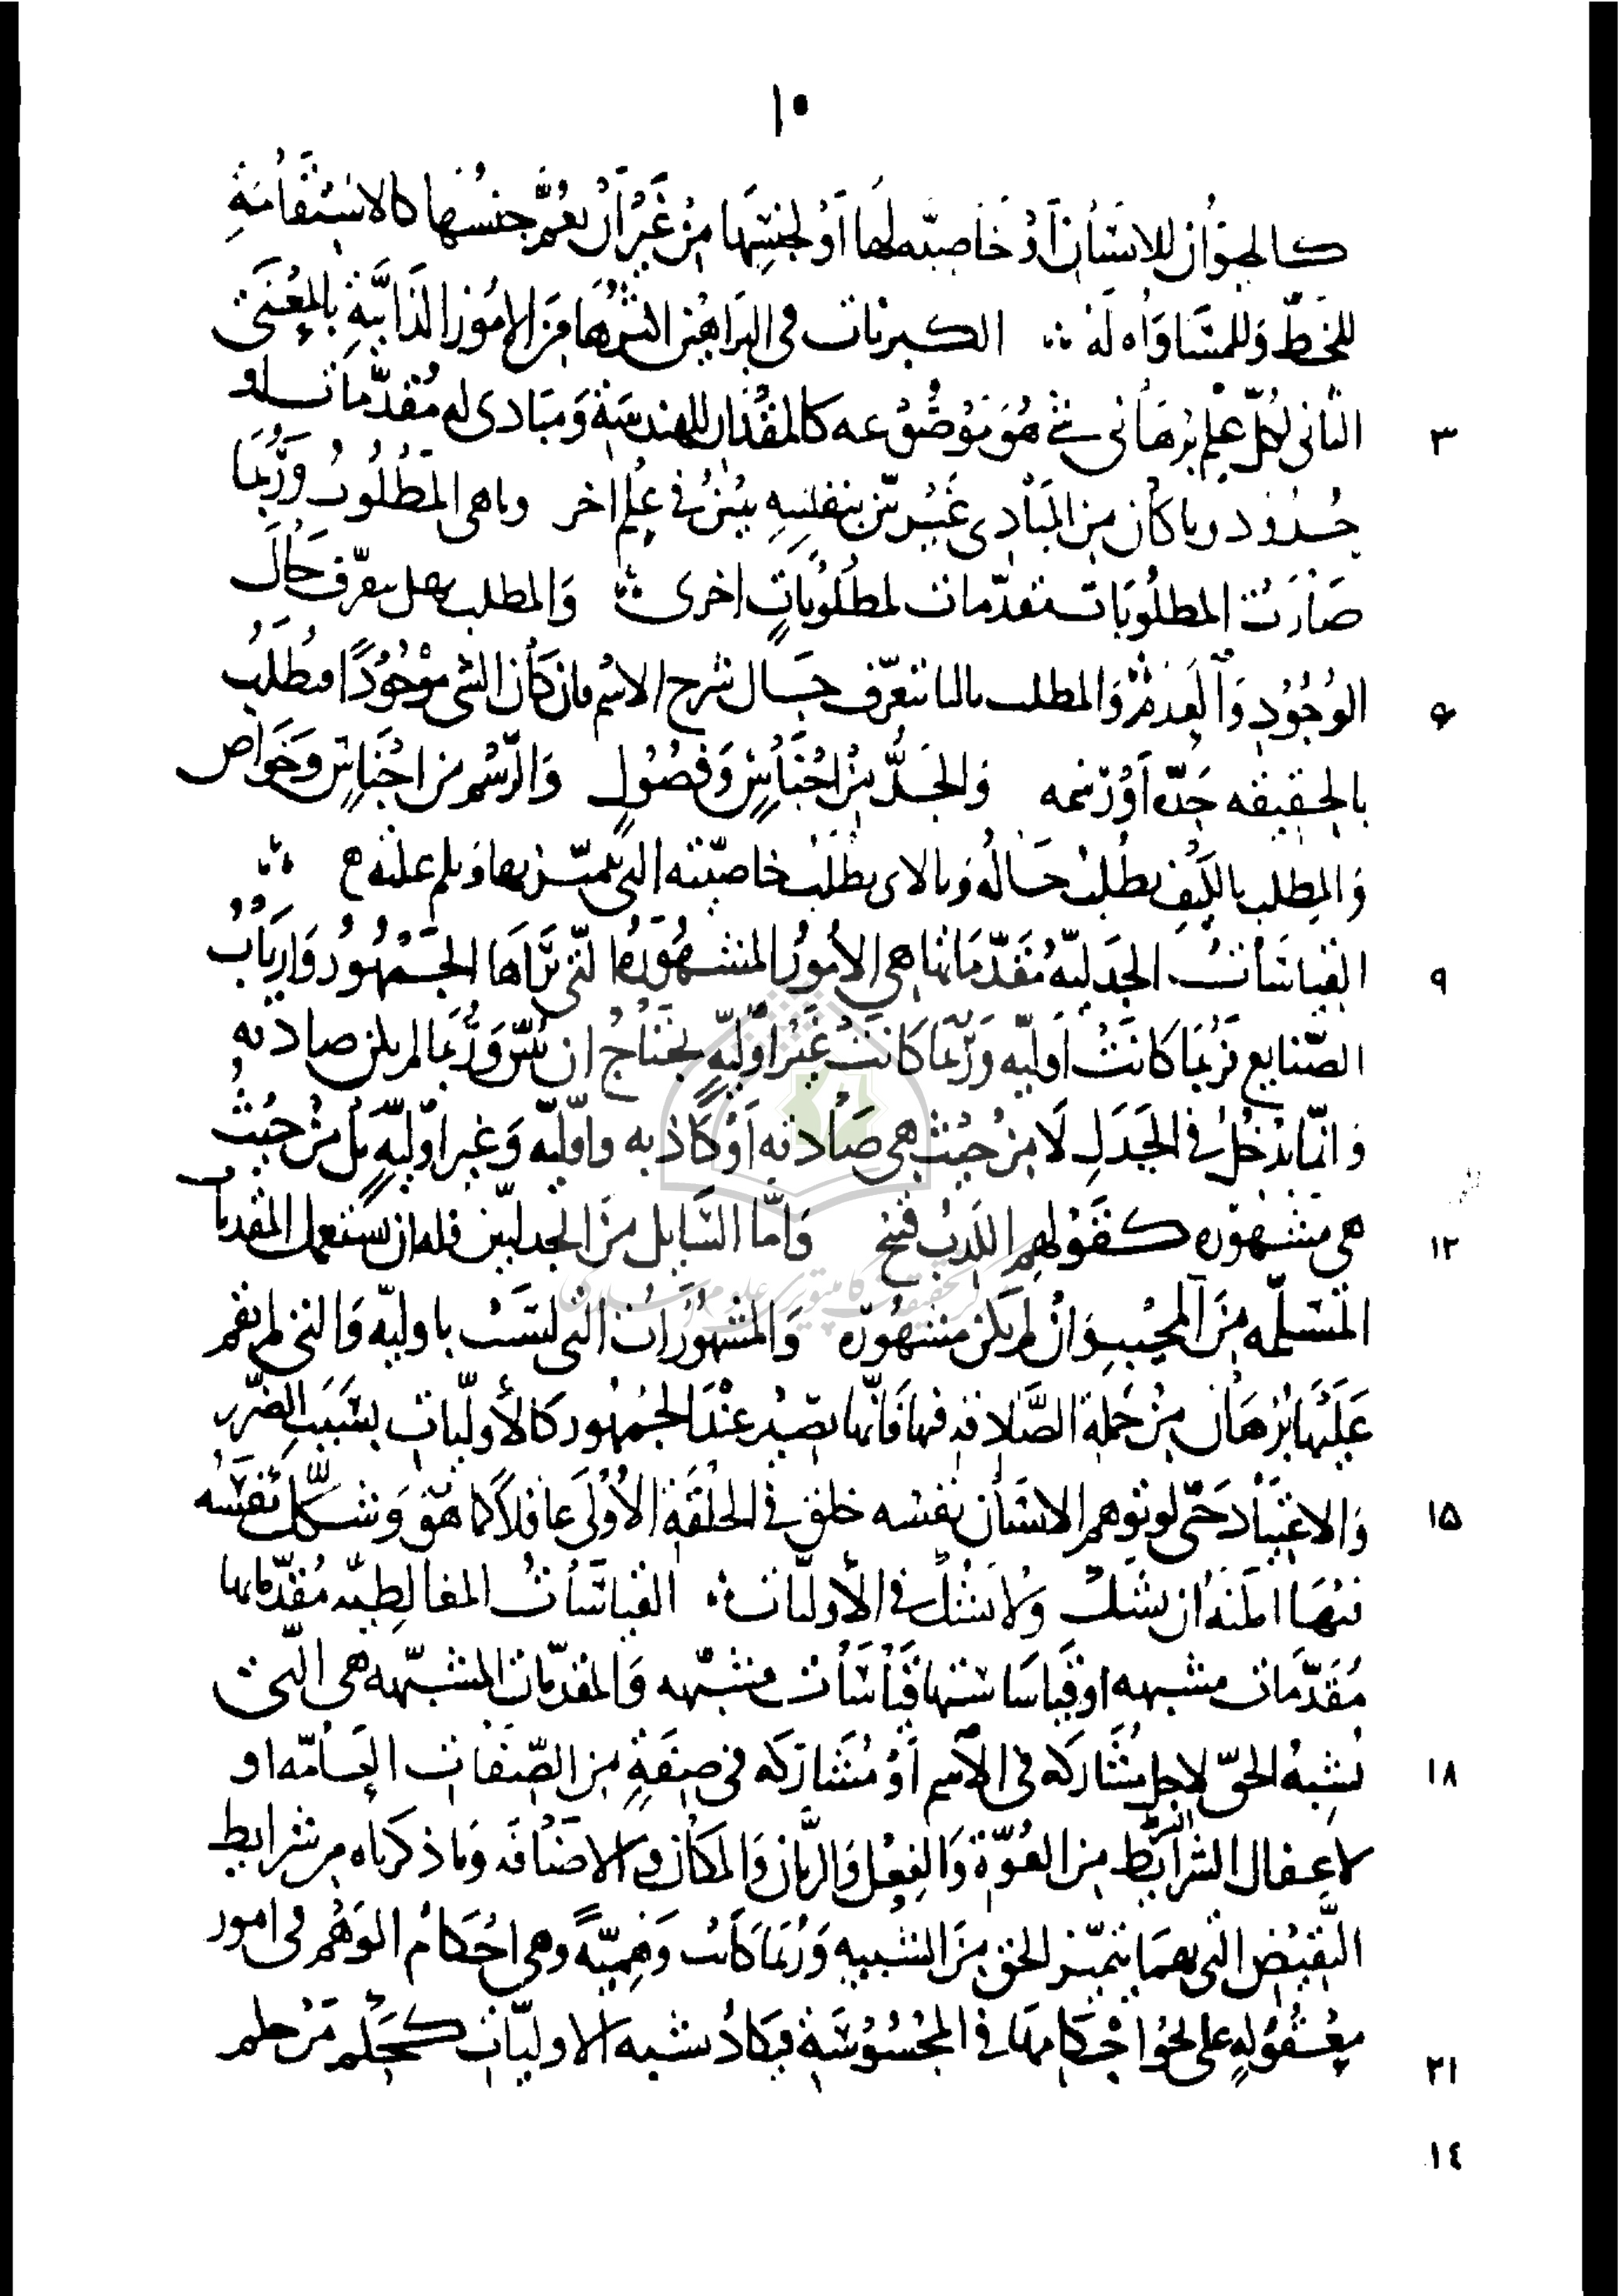 ١٠
كالحيوان للانسان أو خاصيه لها أو لجنسها من غير أن يعم جنسها كالاستقامة
للخط وللمساواه له ∴ الكبريات في البراهين اكثرها من الامور الذاتية بالمعنى
الثانى لكل علم برهانى شيء هو موضوعه كالمقدار للهندسة ومبادى له مقدمات او
٣
حدود وما كان من المبادى غير بين بنفسه يبين في علم اخر وما هي المطلوب وربما
صارت المطلوبات مقدمات لمطلوبات اخرى ∴ والمطلب بهل يتعرف حال
الوجود والعدم والمطلب بالما يتعرف حال شرح الاسم فان كان الشي موجودا فيطلب
۶
بالحقيقه حده أو رسمه والحد من اجناس وفصول والرسم من اجناس وخواص
والمطلب بالكيف يطلب حاله وبالاى يطلب خاصيته التي يتميز بها ∴
القياسات الجدليه مقدماتها هي الأمور المشهوره التي يراها الجمهور وارباب
٩
الصنايع فربما كانت اوليه وربما كانت غير اوليه يحتاج ان تبين وربما لم يكن صادقه
وانما تدخل في الجدل لا من حيث هي صادقه أو كاذبه واوليه وغير اوليه بل من حيث
هي مشهوره كقولهم الكذب قبيح وامّا السايل من الجدليين فله ان يستعمل المقدمات
١٢
المسلمه من المجيب وان لم يكن مشهوره والمشهورات التي ليست باوليه والتي لم يقم
عليها برهان من جملة الصادقه فيها فانها تصير عند الجمهور كالأوليات بسبب التمرن
والاعتياد حتى لو توهم الانسان نفسه خلق في الخلقة الأولى عاقلا كما هو وشكك نفسه
١۵
فيها امكنه ان يشك ولا يشك في الأوليات ∴ القياسات المغالطيه مقدماتها
مقدمات مشبهه او قياساتها قياسات مشبهه والمقدمات المشبهه هي التي
تشبه الحق لاجل مشاركه في الاسم أو مشاركه في صفة من الصفات العامه او
١٨
لاغفال الشرايط من القوة والفعل والزمان والمكان والاضافه وما ذكرناه من شرايط
النقيض التي بهما يتميز الحق من الشبيه وربما كانت وهمية وهي احكام الوهم في امور
معقوله على نحو احكامها في المحسوسة فيكاد تشبه الاوليات كحكم من حكم
٢١
١٤